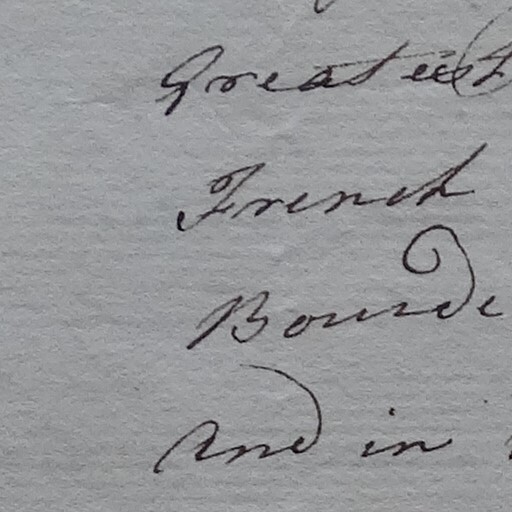 Greatest
French
Bourde
And in